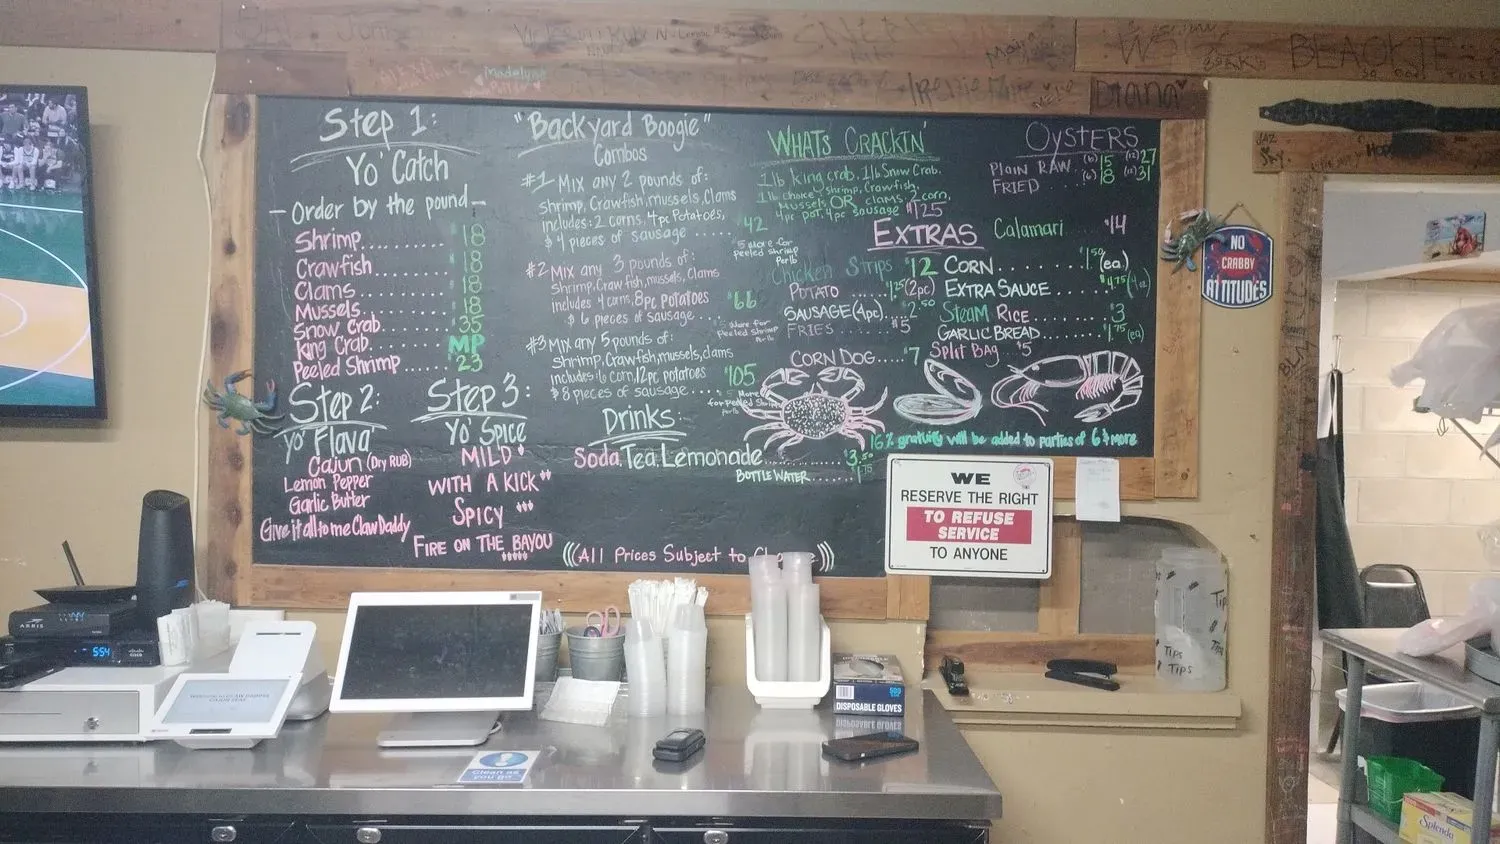 Madelyne
Diana
BLACK
Step 1:
Yo' Catch
- Order by the pound -
Shrimp.......... $18
Crawfish.......... $18
Clams.......... $18
Mussels.......... $18
Snow Crab.......... $35
King Crab.......... MP
Peeled Shrimp.......... $23
Step 2:
Yo' Flava
Cajun (Dry Rub)
Lemon Pepper
Garlic Butter
Give it all to me Claw Daddy
Step 3:
Yo' Spice
MILD
WITH A KICK
SPICY
FIRE ON THE BAYOU
"Backyard Boogie"
Combos
#1 Mix any 2 pounds of:
shrimp, Crawfish, mussels, Clams
includes: 2 corns, 4pc Potatoes,
& 4 pieces of sausage ..... $42
$5 More for
peeled shrimp
per lb
#2 Mix any 3 pounds of:
Shrimp, Crawfish, mussels, Clams
includes 4 corns, 8pc potatoes
& 6 pieces of sausage ..... $66
$5 More for
peeled shrimp
per lb
#3 Mix any 5 pounds of:
Shrimp, Crawfish, mussels, clams
includes: 6 corn, 12pc potatoes
& 8 pieces of sausage ..... $105
$5 More
for peeled Shrimp
per lb
Drinks:
Soda, Tea, Lemonade.......... $3.50
BOTTLE WATER.......... $1.75
(((All Prices Subject to
WHATS CRACKIN'
1 lb king crab, 1 lb Snow Crab,
1 lb choice shrimp, Crawfish,
Mussels OR clams, 2 corn,
4pc pot, 4pc sausage $125
OYSTERS
PLAIN RAW (6) 15 (12) 27
FRIED (6) 18 (12) 31
EXTRAS
Calamari $14
Chicken Strips $12
POTATO ..... $1.25 (2pc)
SAUSAGE (4pc)... $2.50
FRIES $5
CORN DOG.... $7
CORN.......... $1.50 (ea)
EXTRA SAUCE
Steam Rice $3
GARLIC BREAD $1.75 (ea)
Split Bag $5
16% gratuity will be added to parties of 6 & more
WE
RESERVE THE RIGHT
TO REFUSE
SERVICE
TO ANYONE
NO
CRABBY
ATTITUDES
ARRIS
5:54
DISPOSABLE GLOVES
Clean as
you go
Tips
Tips
Tips
Splenda